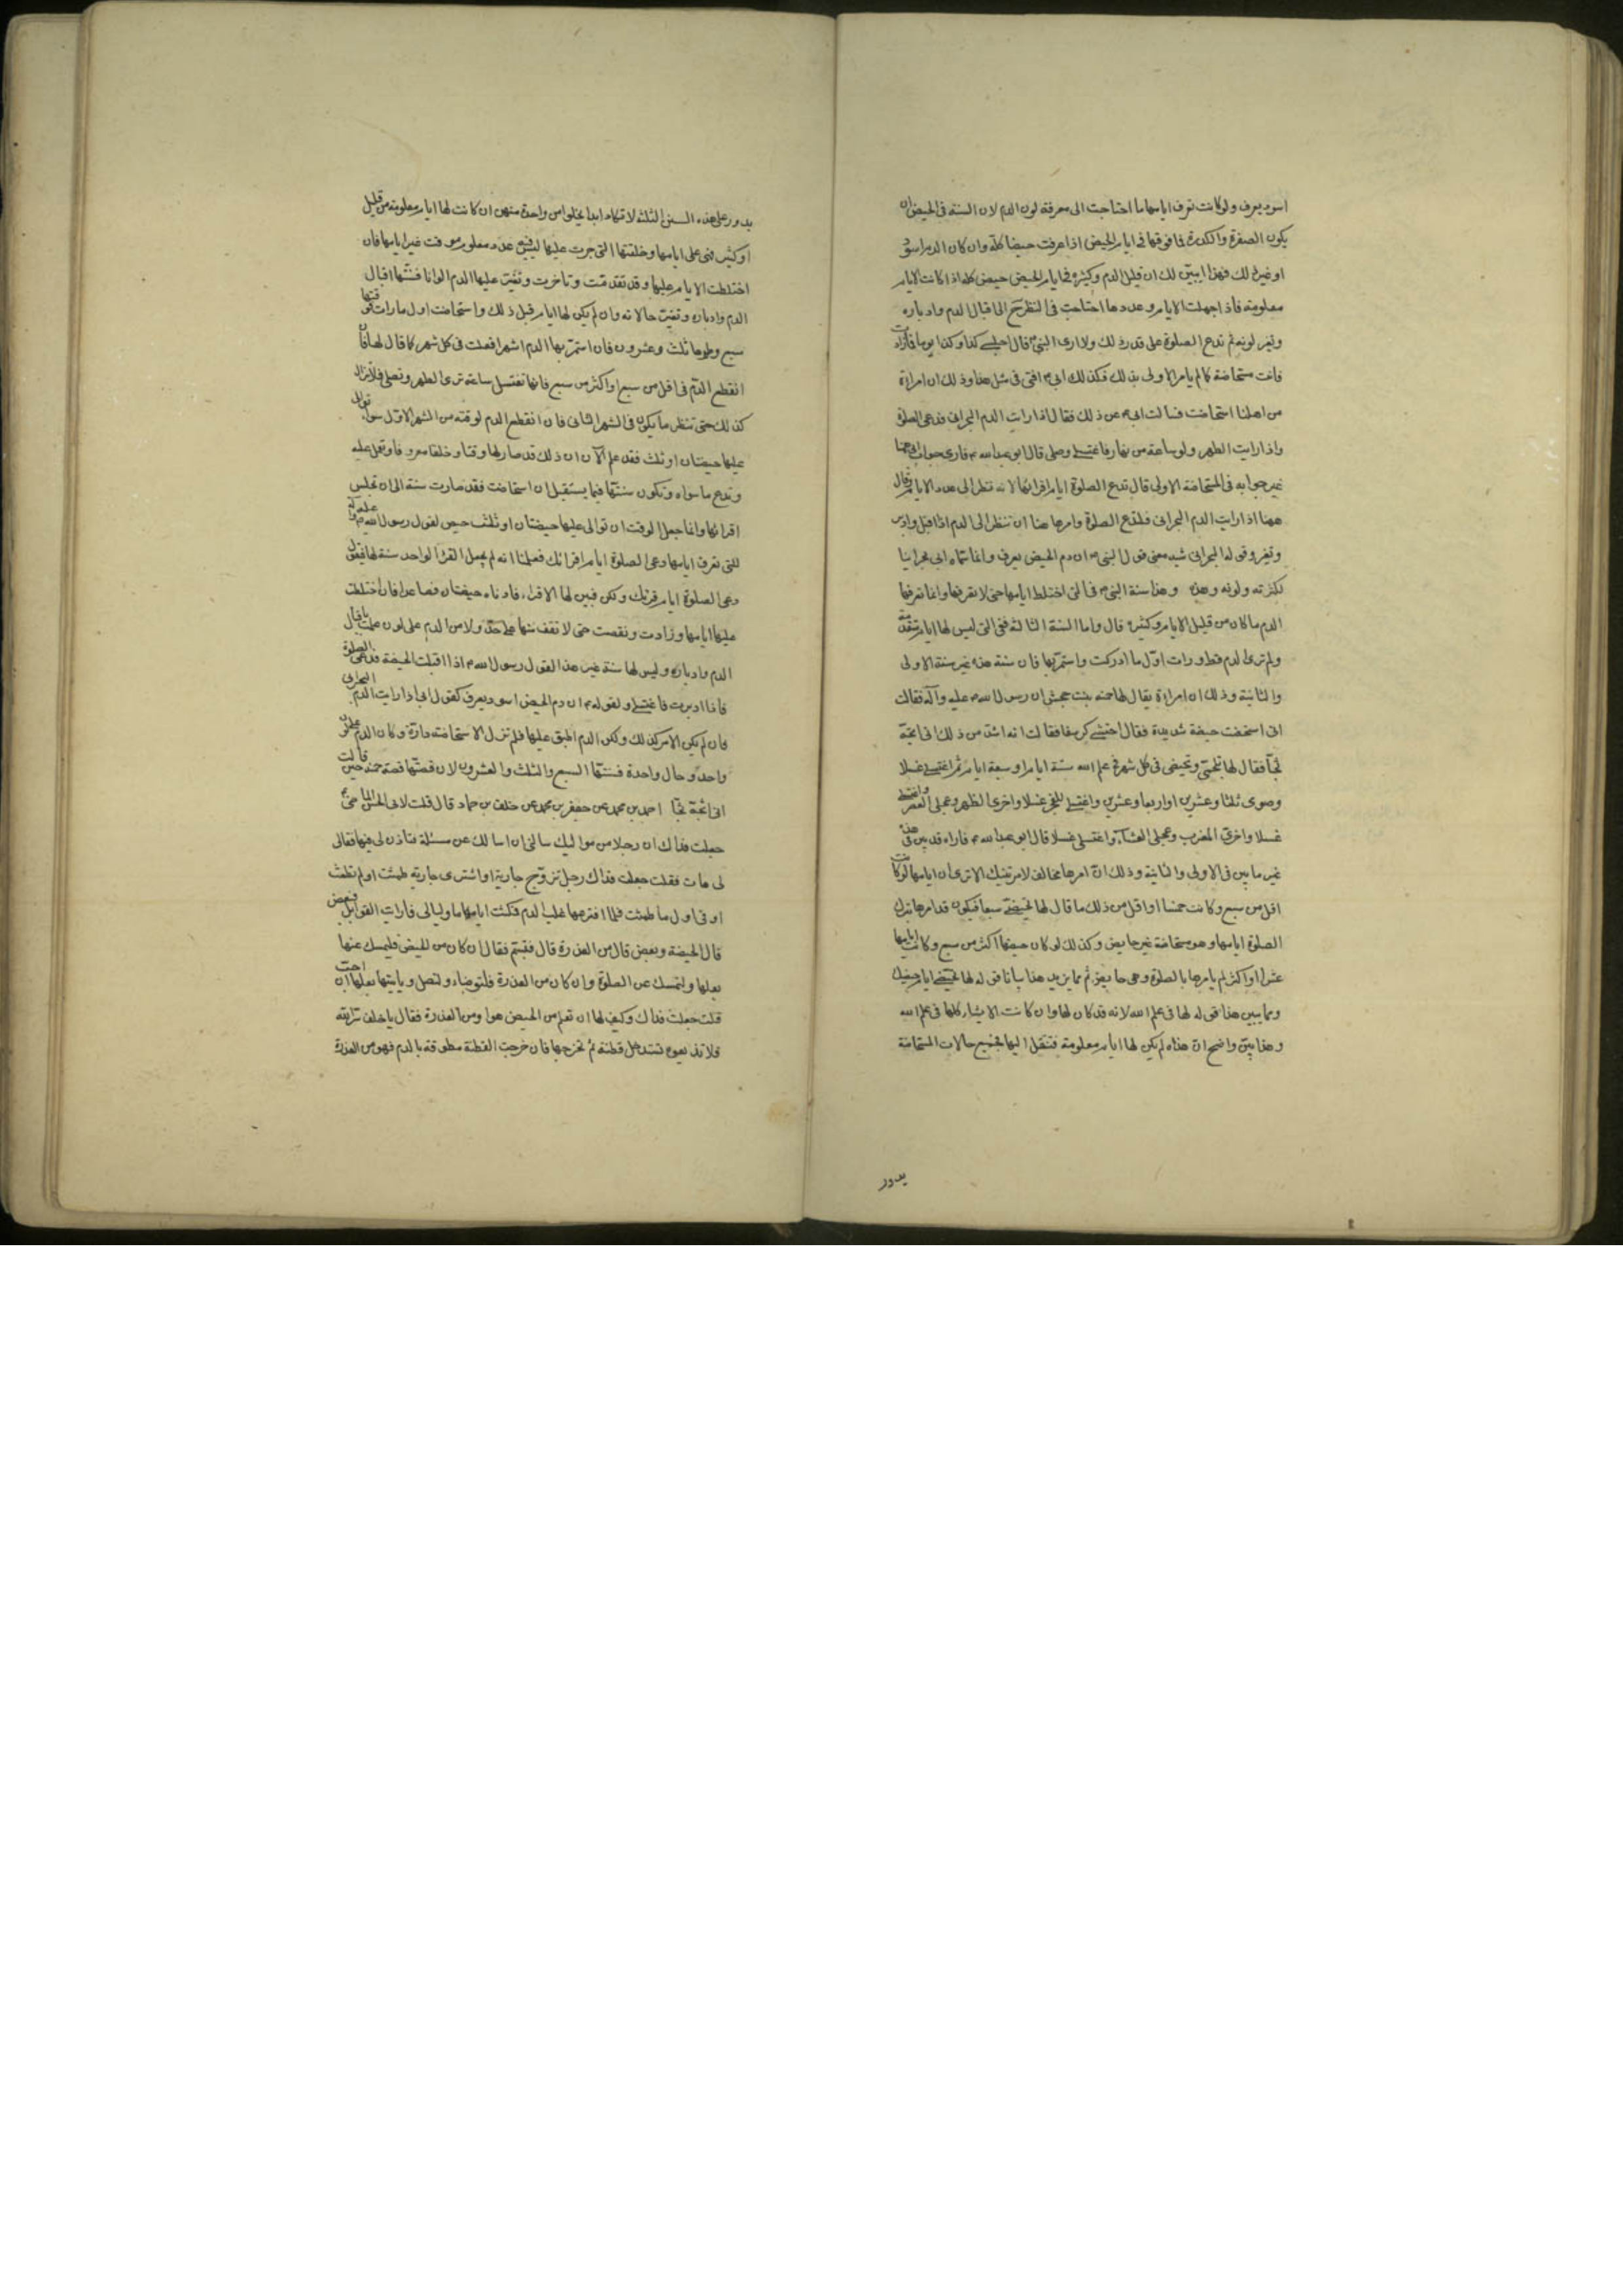 اسود يعرف ولو كانت تعرف ايامها ما احتاجت الى معرفة لون الدم لان السنة فى الحيض ان
يكون الصفرة والكدرة فما فوقها فى ايام الحيض اذا عرفت حيضا كله وان كان الدم اسود
او غير ذلك فهذا يبين لك ان قليل الدم وكثيره فى ايام الحيض حيض كله اذا كانت الايام
معلومة فاذا جهلت الايام وعددها احتاجت فى النظر ح الى اقبال الدم وادباره
وتغير لونه ثم تدع الصلوة على قدر ذلك ولا ارى النبى قال اجلسى كذا وكذا يوما فما زادت
فانت مستحاضة كما لم يامر الاولى بذلك فكذلك ابى افتى فى مثل هذا وذلك ان امراة
من اهلنا استحاضت فسالت ابى عن ذلك فقال اذا رايت الدم البحرانى فدعى الصلوة
واذا رايت الطهر ولو ساعة من نهار فاغتسلى وصلى قال ابو عبد الله فارى جواب ابى ههنا
غير جوابه فى المستحاضة الاولى قال تدع الصلوة ايام اقرائها لانه نظر الى عدد الايام وقال
ههنا اذا رايت الدم البحرانى فلتدع الصلوة وامرها هنا ان تنظر الى الدم اذا اقبل وادبر
وتغير وقوله البحرانى شبه معنى قول النبى ان دم الحيض يعرف وانما سماه ابى بحرانيا
لكثرته ولونه وهذه وهذا سنة النبى فى التى اختلط ايامها حتى لا تعرفها وانما تعرفها
الدم ما كان من قليل الايام وكثيره قال واما السنة الثالثة ففى التى ليس لها ايام متقدمة
ولم ترى الدم قط ورات اول ما ادركت واستمر بها فان سنة هذه غير سنة الاولى
والثانية وذلك ان امراة يقال لها حمنه بنت جحش ان رسول الله عليه وآله فقالت
انى استحضت حيضة شديدة فقال احتشى كرسفا فقالت انه اشد من ذلك انى اثجه
ثجا فقال لها تلجمى وتحيضى فى كل شهر فى علم الله ستة ايام او سبعة ايام ثم اغتسلى غسلا
وصومى ثلثا وعشرين او اربعا وعشرين واغتسلى للفجر غسلا واخرى الظهر وعجلى العصر واغتسلى
غسلا واخرى المغرب وعجلى العشاء واغتسلى غسلا قال ابو عبد الله فاراه قد بين فى هذه
غير ما بين فى الاولى والثانية وذلك ان امرها مخالف لامر تينك الا ترى ان ايامها لو كانت
اقل من سبع وكانت خمسا او اقل من ذلك ما قال لها تحيضى سبعا فيكون قد امرها بترك
الصلوة ايامها وهى مستحاضة غير حايض وكذلك لو كان حيضها اكثر من سبع وكانت ايامها
عشرا او اكثر لم يامرها بالصلوة وهى حايض ثم مما يزيد هذا بيانا قوله لها تحيضى ايام حيضك
ومما يبين هذا قوله لها فى علم الله لانه قد كان لها وان كانت الاشياء كلها فى علم الله
وهذا بين واضح ان هذه لم يكن لها ايام معلومة فتنقل اليها فجميع حالات المستحاضة
يدور
يدور على هذه السنن الثلثة لا تكاد ابدا يخلو من واحدة منهن ان كانت لها ايام معلومة من قليل
او كثير فهى على ايامها وخلقتها التى جرت عليها ليس فيه عدد معلوم موقت غير ايامها فان
اختلطت الايام عليها وقد تقدمت وتاخرت وتغير عليها الدم الوانا فسنتها اقبال
الدم وادباره وتغير حالاته وان لم يكن لها ايام قبل ذلك واستحاضت اول ما رات فوقتها
سبع وطهرها ثلث وعشرون فان استمر بها الدم اشهرا فعلت فى كل شهر كما قال لها فان
انقطع الدم فى اقل من سبع او اكثر من سبع فانها تغتسل ساعة ترى الطهر وتصلى فلا تزال
كذلك حتى تنظر ما يكون فى الشهر الثانى فان انقطع الدم لوقته من الشهر الاول سواء توالى
عليها حيضتان او ثلث فقد علم الآن ان ذلك قد صار لها وقتا وخلقا معروفا وتعمل عليه
وتدع ما سواه وتكون سنتها فيما يستقبل ان استحاضت فقد صارت سنة الى ان تجلس
اقرائها وانما جعل الوقت ان توالى عليها حيضتان او ثلث حيض لقول رسول الله عليه وآله
للتى تعرف ايامها دعى الصلوة ايام اقرائك فعلمنا انه لم يجعل القرء الواحد سنة لها فيقول
دعى الصلوة ايام قرئك ولكن فبين لها الاقراء فادناه حيضتان فصاعدا فان اختلطت
عليها ايامها وزادت ونقصت حتى لا تقف منها على حد ولا من الدم على لون عملت باقبال
الدم وادباره وليس لها سنة غير هذا لقول رسول الله اذا اقبلت الحيضة فدعى الصلوة
فاذا ادبرت فاغتسلى ولقوله ان دم الحيض اسود يعرف كقول ابى اذا رايت الدم البحرانى
فان لم يكن الامر كذلك ولكن الدم اطبق عليها فلم تزل الاستحاضة دارة وكان الدم على لون
واحد وحال واحدة فسنتها السبع والثلث والعشرون لان قصتها قصة حمنه حين قالت
انى اثجه ثجا احمد بن محمد عن جعفر بن محمد عن خلف بن حماد قال قلت لابى الحسن الماضى
جعلت فداك ان رجلا من مواليك سالنى ان اسالك عن مسئلة فتاذن لى فيها فقال
لى هات فقلت جعلت فداك رجل تزوج جارية او اشترى جارية طمثت او لم تطمث
او فى اول ما طمثت فلما افترعها غلب الدم فمكث اياما وليالى فارات القوابل فبعض
قال الحيضة وبعض قال من العذرة قال فتبسم فقال ان كان من الحيض فليمسك عنها
بعلها ولتمسك عن الصلوة وان كان من العذرة فلتوضاء ولتصل وياتيها بعلها ان احب
قلت جعلت فداك وكيف لها ان تعلم من الحيض هو او من العذرة فقال يا خلف
تستدخل قطنة ثم تخرجها فان خرجت القطنة مطوقة بالدم فهو من العذرة